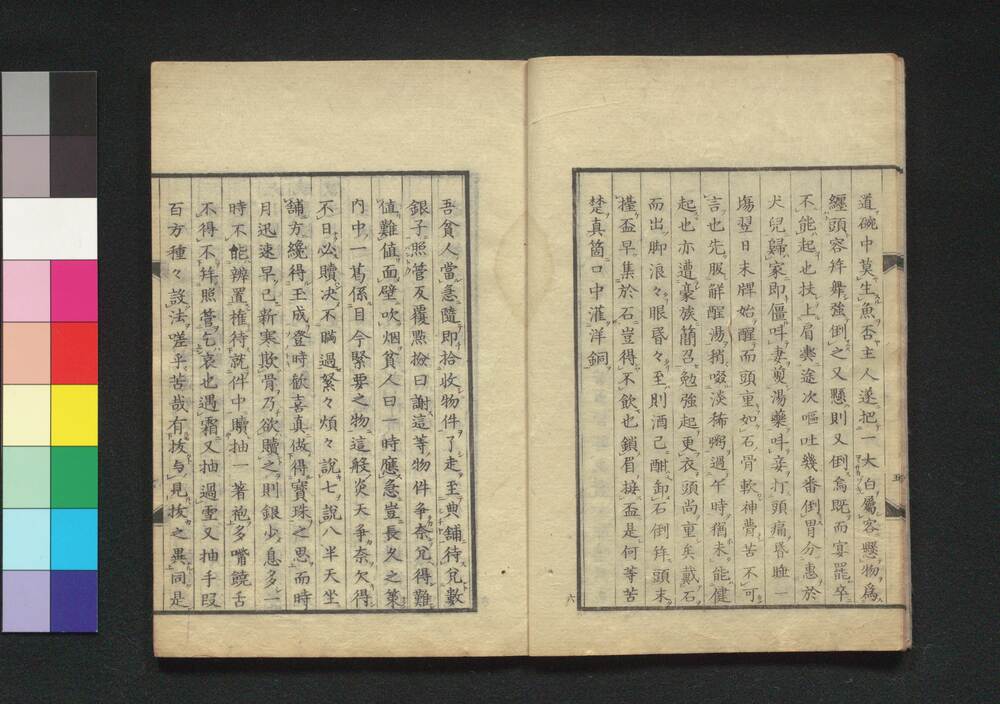 道碗中莫生魚否主人遂把一大白屬客懸物為
纒頭容許舞強倒之又懸則又倒為既而宴罷卒
不能起也扶上肩輿途次嘔吐幾番倒胃分惠於
犬兒歸家即僵呌妻煎湯藥呌妾打頭痛昏睡一
塲翌日未牌始醒而頭重如石骨軟神費苦不可
言也先服解酲湯稍啜淡稀粥過午時猶未能健
起也亦遭豪族簡召勉強起更衣頭尚重矣戴石
而出脚浪々眼昏々至則酒已酣卸石倒鉾頭末
擡盃早集於石豈得不飲也鎖眉接盃是何等苦
楚真箇口中灌洋銅
六
吾貧人當急隨即拾收物件了走至典舖待兌數
銀子照管反覆㸃撿曰謝這等物件争奈兌得難
値難値面壁吹烟貧人曰一時應急豈長久之策
內中一葛係目今緊要之物這般炎天争奈欠得
不日必贖决不瞞過緊々煩々說七說八半天坐
舖方纔得玉成登時歡喜真做得寶珠之思而時
月迅速早已新寒欺骨乃欲贖之則銀少息多一
時不能辨置権待就件中贖抽一著袍多嘴饒舌
不得不鉾照管乞哀也遇霜又抽過雪又抽手叚
百方種々設法嗟乎苦哉有抜与見抜之異同是